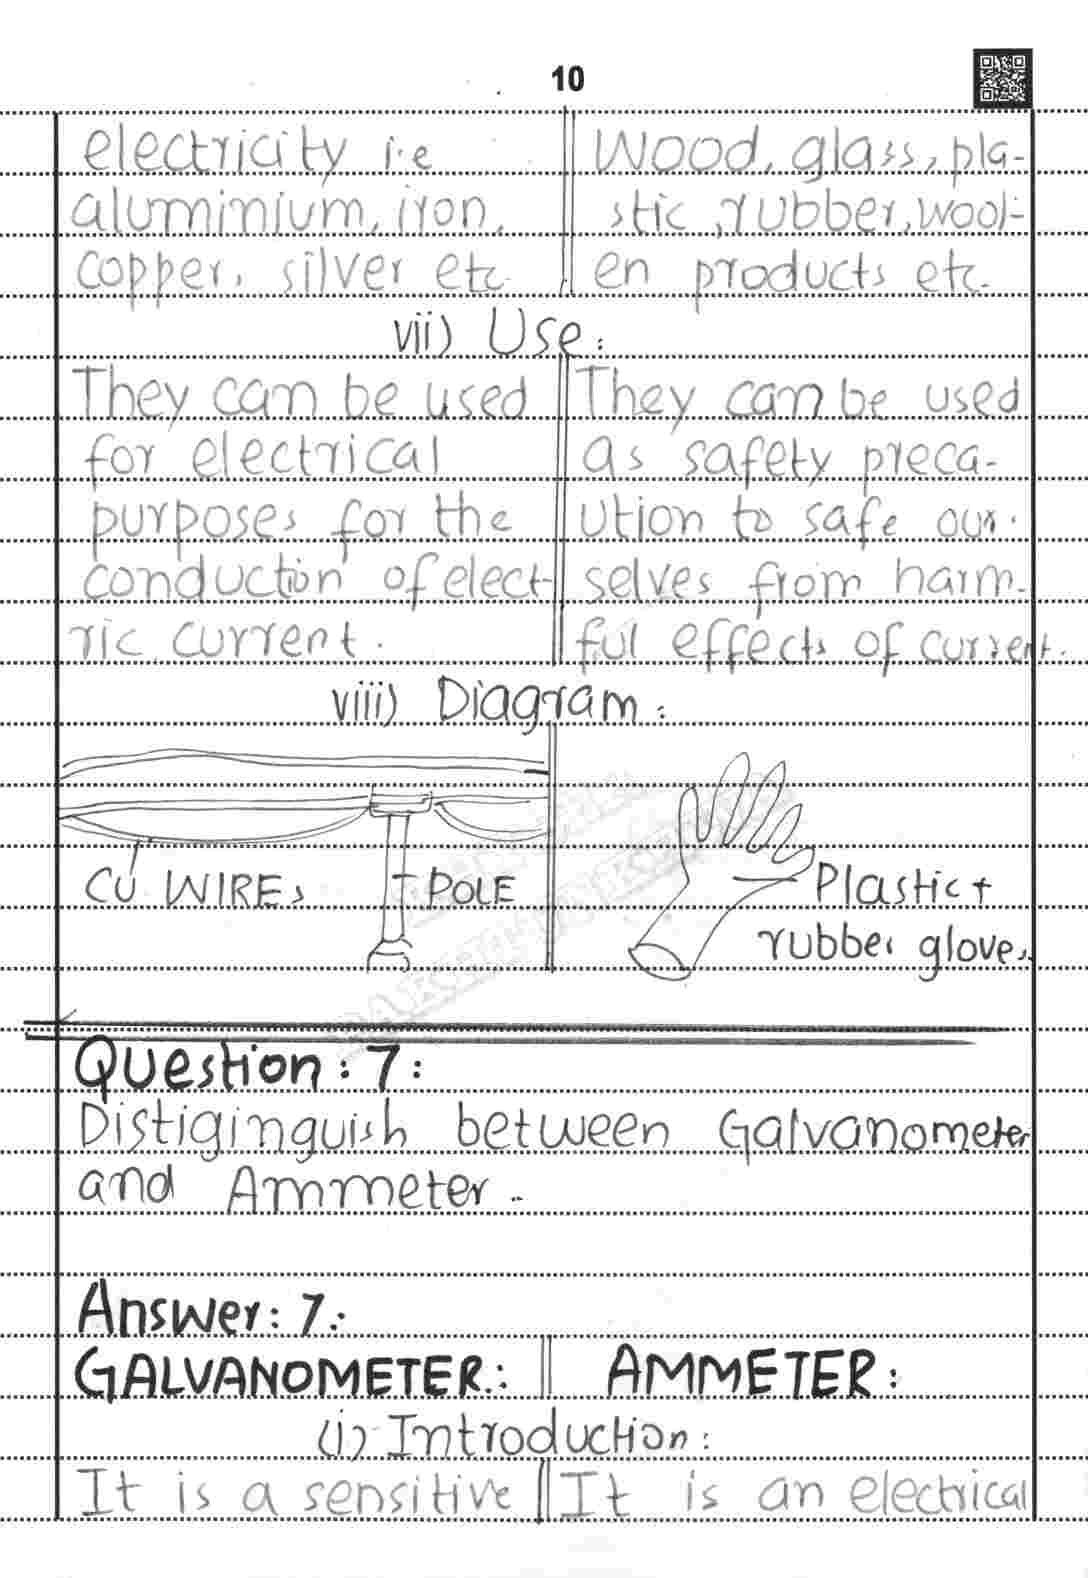 10
electricity i.e
aluminium, iron,
copper, silver etc.
Wood, glass, pla-
stic, rubber, wool-
en products etc.
vii) Use:
They can be used
for electrical
purposes for the
conduction of elect-
ric current.
They can be used
as safety preca-
ution to safe our.
selves from harm-
ful effects of current.
viii) Diagram:
CU WIREs
POLE
Plastic +
rubber gloves
Question: 7:
Distiginguish between Galvanometer
and Ammeter.
Answer: 7:
GALVANOMETER:
AMMETER:
(i) Introduction:
It is a sensitive
It is an electrical